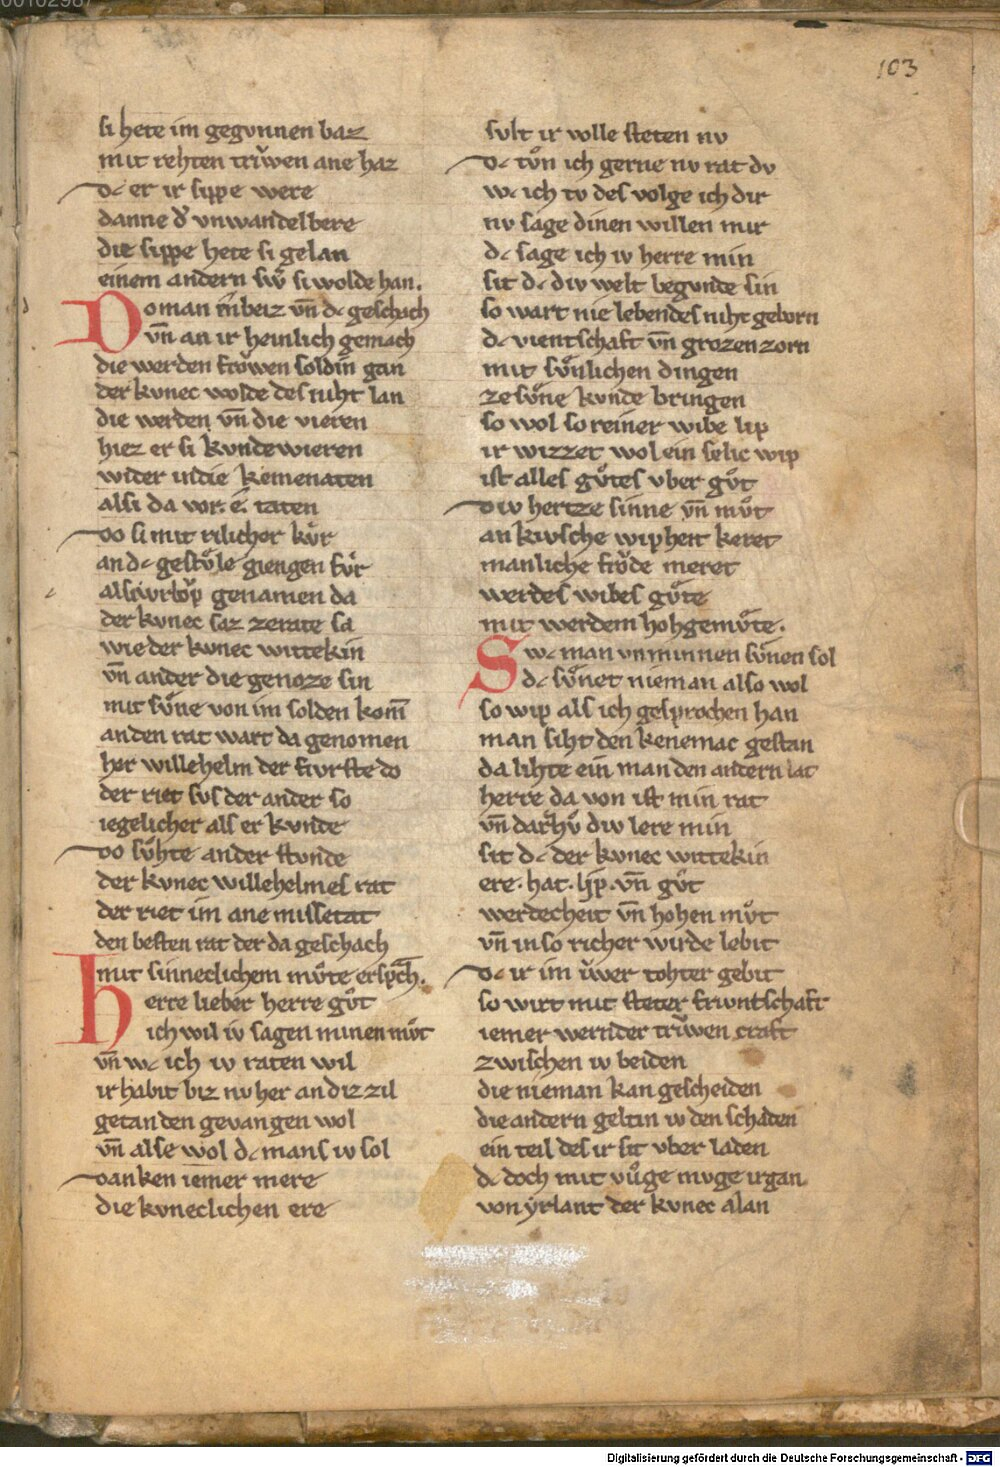 103
si hete im gegvnnen baz
mit rehten trv̓wen ane haz
dc er ir sippe were
danne d͛ vnwandelbere
die sippe hete si gelan
einem andern sw͛ si wolde han.
Do man inbeiz vn̄ dc geschach
vn̄ an ir heinlich gemach
die werden frǒwen soldin gan
der kvnec wolde des niht lan
die werden vn̄ die vieren
hiez er si kvndewieren
wider indie kemenaten
alsi da vor. e. taten
Do si mit rilicher kv̊r
an dc gestv̊le giengen fv̊r
genamen da
der kvnec saz zerate sa
wie der kvnec wittekin
vn̄ ander die genoze sin
mit sv̊ne von im solden kom̄
anden rat wart da genomen
her willehelm der fivrste do
der riet svs der ander so
iegelicher als er kvnde
Do sv̊hte ander stvnde
der kvnec willehelmes rat
der riet im ane missetat
den besten rat der da geschach
mit sinneclichem mv̊te ersp̄ch.
Herre lieber herre gv̊t
ich wil iv sagen minen mv̊t
vn̄ wc ich iv raten wil
ir habit biz nv her an diz zil
getan den gevangen wol
vn̄ alse wol dc mans iv sol
Danken iemer mere
die kvneclichen ere
svlt ir volle steten nv
Dc tv̊n ich gerne nv rat dv
wc ich tv des volge ich dir
nv sage dinen willen mir
dc sage ich iv herre min
sit dc div welt begvnde sin
so wart nie lebendes niht geborn
dc vientschaft vn̄ grozen zorn
mit sv̊nlichen dingen
ze sv̊ne kvnde bringen
so wol so reiner wibe lip
ir wizzet wol ein selic wip
ist alles gv̊tes vber gv̊t
Div hertze sinne vn̄ mv̊t
an kivsche wipheit keret
manliche frǒde meret
werdes wibes gv̊te
mit werdem hohgemv̊te.
Swc man vnminnen sv̊nen sol
dc sv̊net nieman also wol
so wip als ich gesprochen han
man siht den kenemac gestan
da lihte ein man den andern lat
herre da von ist min rat
vn̄ darzv̊ div lere min
sit dc der kvnec wittekin
ere. hat. lip. vn̄ gv̊t
werdecheit vn̄ hohen mv̊t
vn̄ in so richer wirde lebit
Dc ir im v̓wer tohter gebit
so wirt mit steter frivntschaft
iemer wernder trv̓wen craft
zwischen iv beiden
die nieman kan gescheiden
die andern geltin iv den schaden
ein teil des ir sit vber laden
dc doch mit vv̊ge mvge irgan
von yrlant der kvnec alan
Digitalisierung gefördert durch die Deutsche Forschungsgemeinschaft - DFG